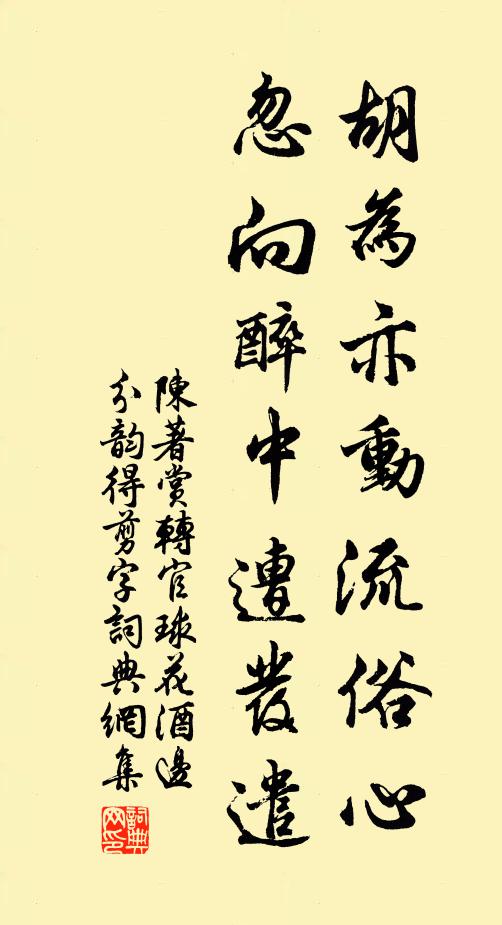 胡為亦動流俗心
忽向醉中遭發遣
陳著賞轉官球花酒邊
分韵得剪字詞典網集